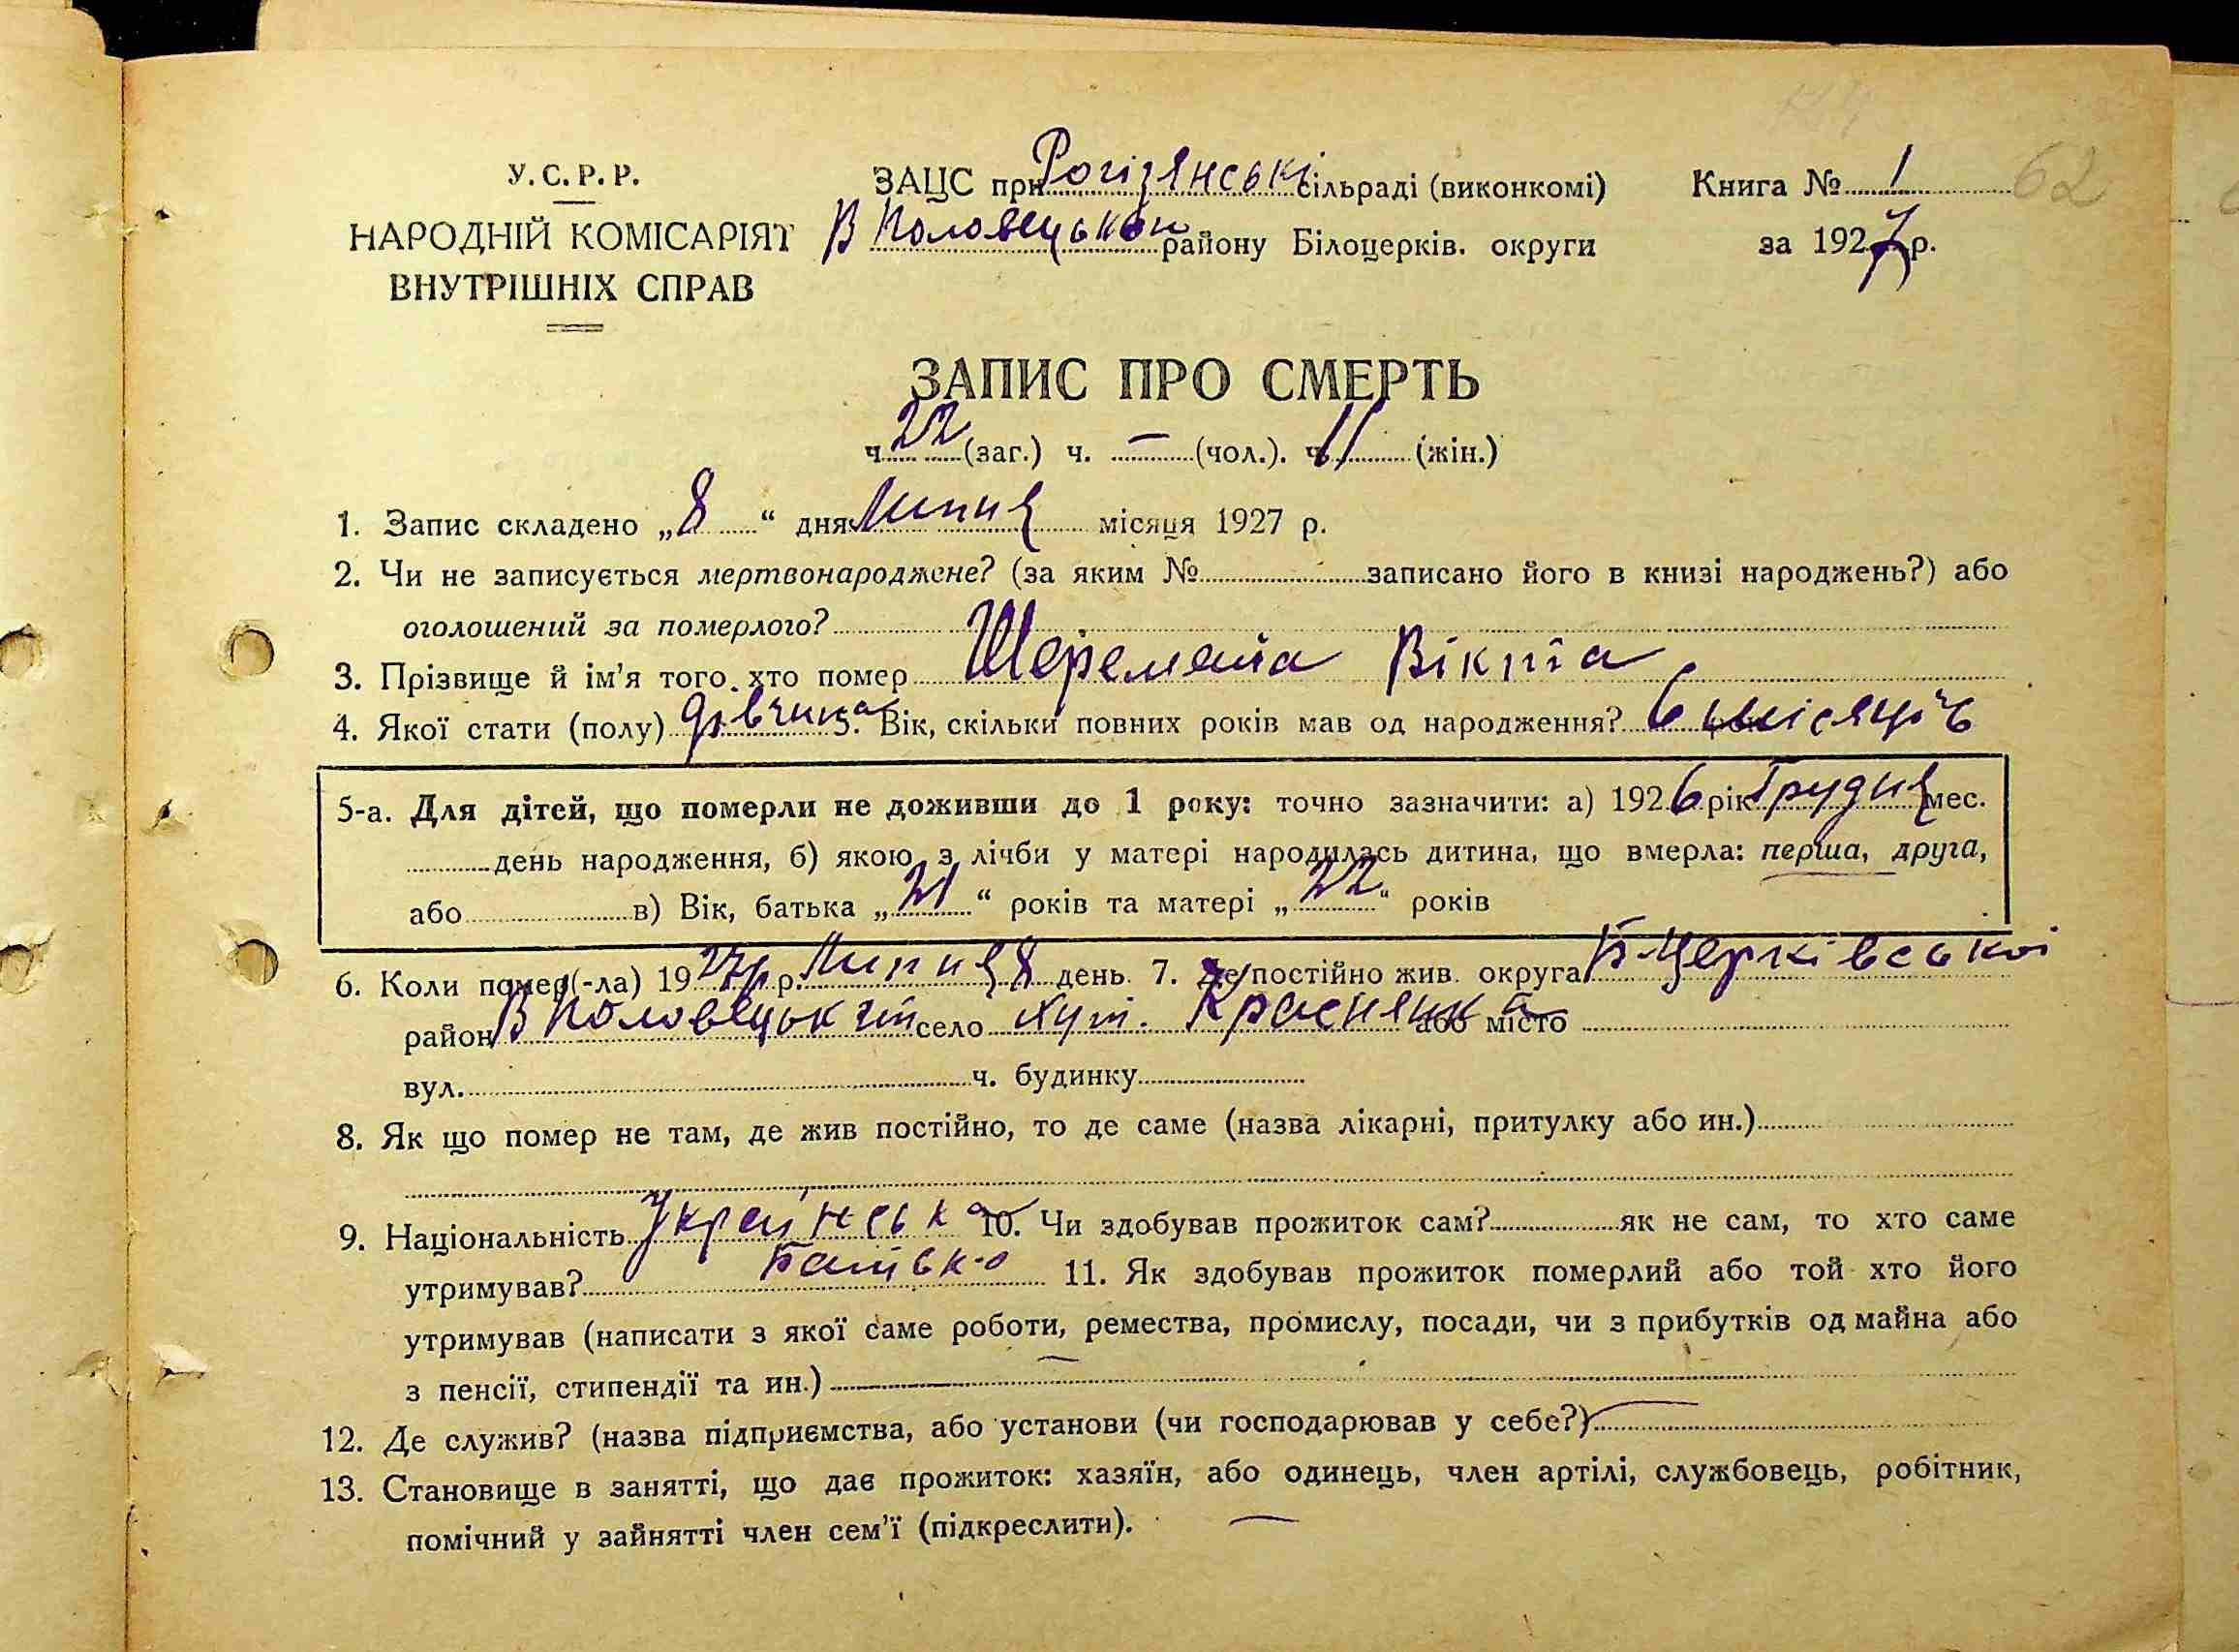 62
У. С. Р. Р.
НАРОДНІЙ КОМІСАРІЯТ
ВНУТРІШНІХ СПРАВ
ЗАЦС при Рогізянські сільраді (виконкомі)
В Половецького району Білоцерків. округи
Книга № 1
за 1927 р.
ЗАПИС ПРО СМЕРТЬ
ч. 22 (заг.) ч. — (чол.). ч. 11 (жін.)
1. Запис складено „8“ дня Липня місяця 1927 р.
2. Чи не записується мертвонароджене? (за яким № записано його в книзі народжень?) або
оголошений за померлого?
3. Прізвище й ім'я того, хто помер Шеремета Вікта
4. Якої стати (полу) дівчина 5. Вік, скільки повних років мав од народження? 6 місяців
5-а. Для дітей, що померли не доживши до 1 року: точно зазначити: а) 1926 рік Грудня мес.
день народження, б) якою з лічби у матері народилась дитина, що вмерла: перша, друга,
або в) Вік, батька „21“ років та матері „22“ років
6. Коли помер(-ла) 1927 р. Липня 8 день. 7. Де постійно жив. округа Б-Церківської
район В Половецький село Хут. Красняка або місто
вул. ч. будинку
8. Як що помер не там, де жив постійно, то де саме (назва лікарні, притулку або ин.)
9. Національність Українська 10. Чи здобував прожиток сам? як не сам, то хто саме
утримував? Батько 11. Як здобував прожиток померлий або той хто його
утримував (написати з якої саме роботи, ремества, промислу, посади, чи з прибутків од майна або
з пенсії, стипендії та ин.)
12. Де служив? (назва підприємства, або установи (чи господарював у себе?) —
13. Становище в занятті, що дає прожиток: хазяїн, або одинець, член артілі, службовець, робітник,
помічний у зайнятті член сем'ї (підкреслити). —